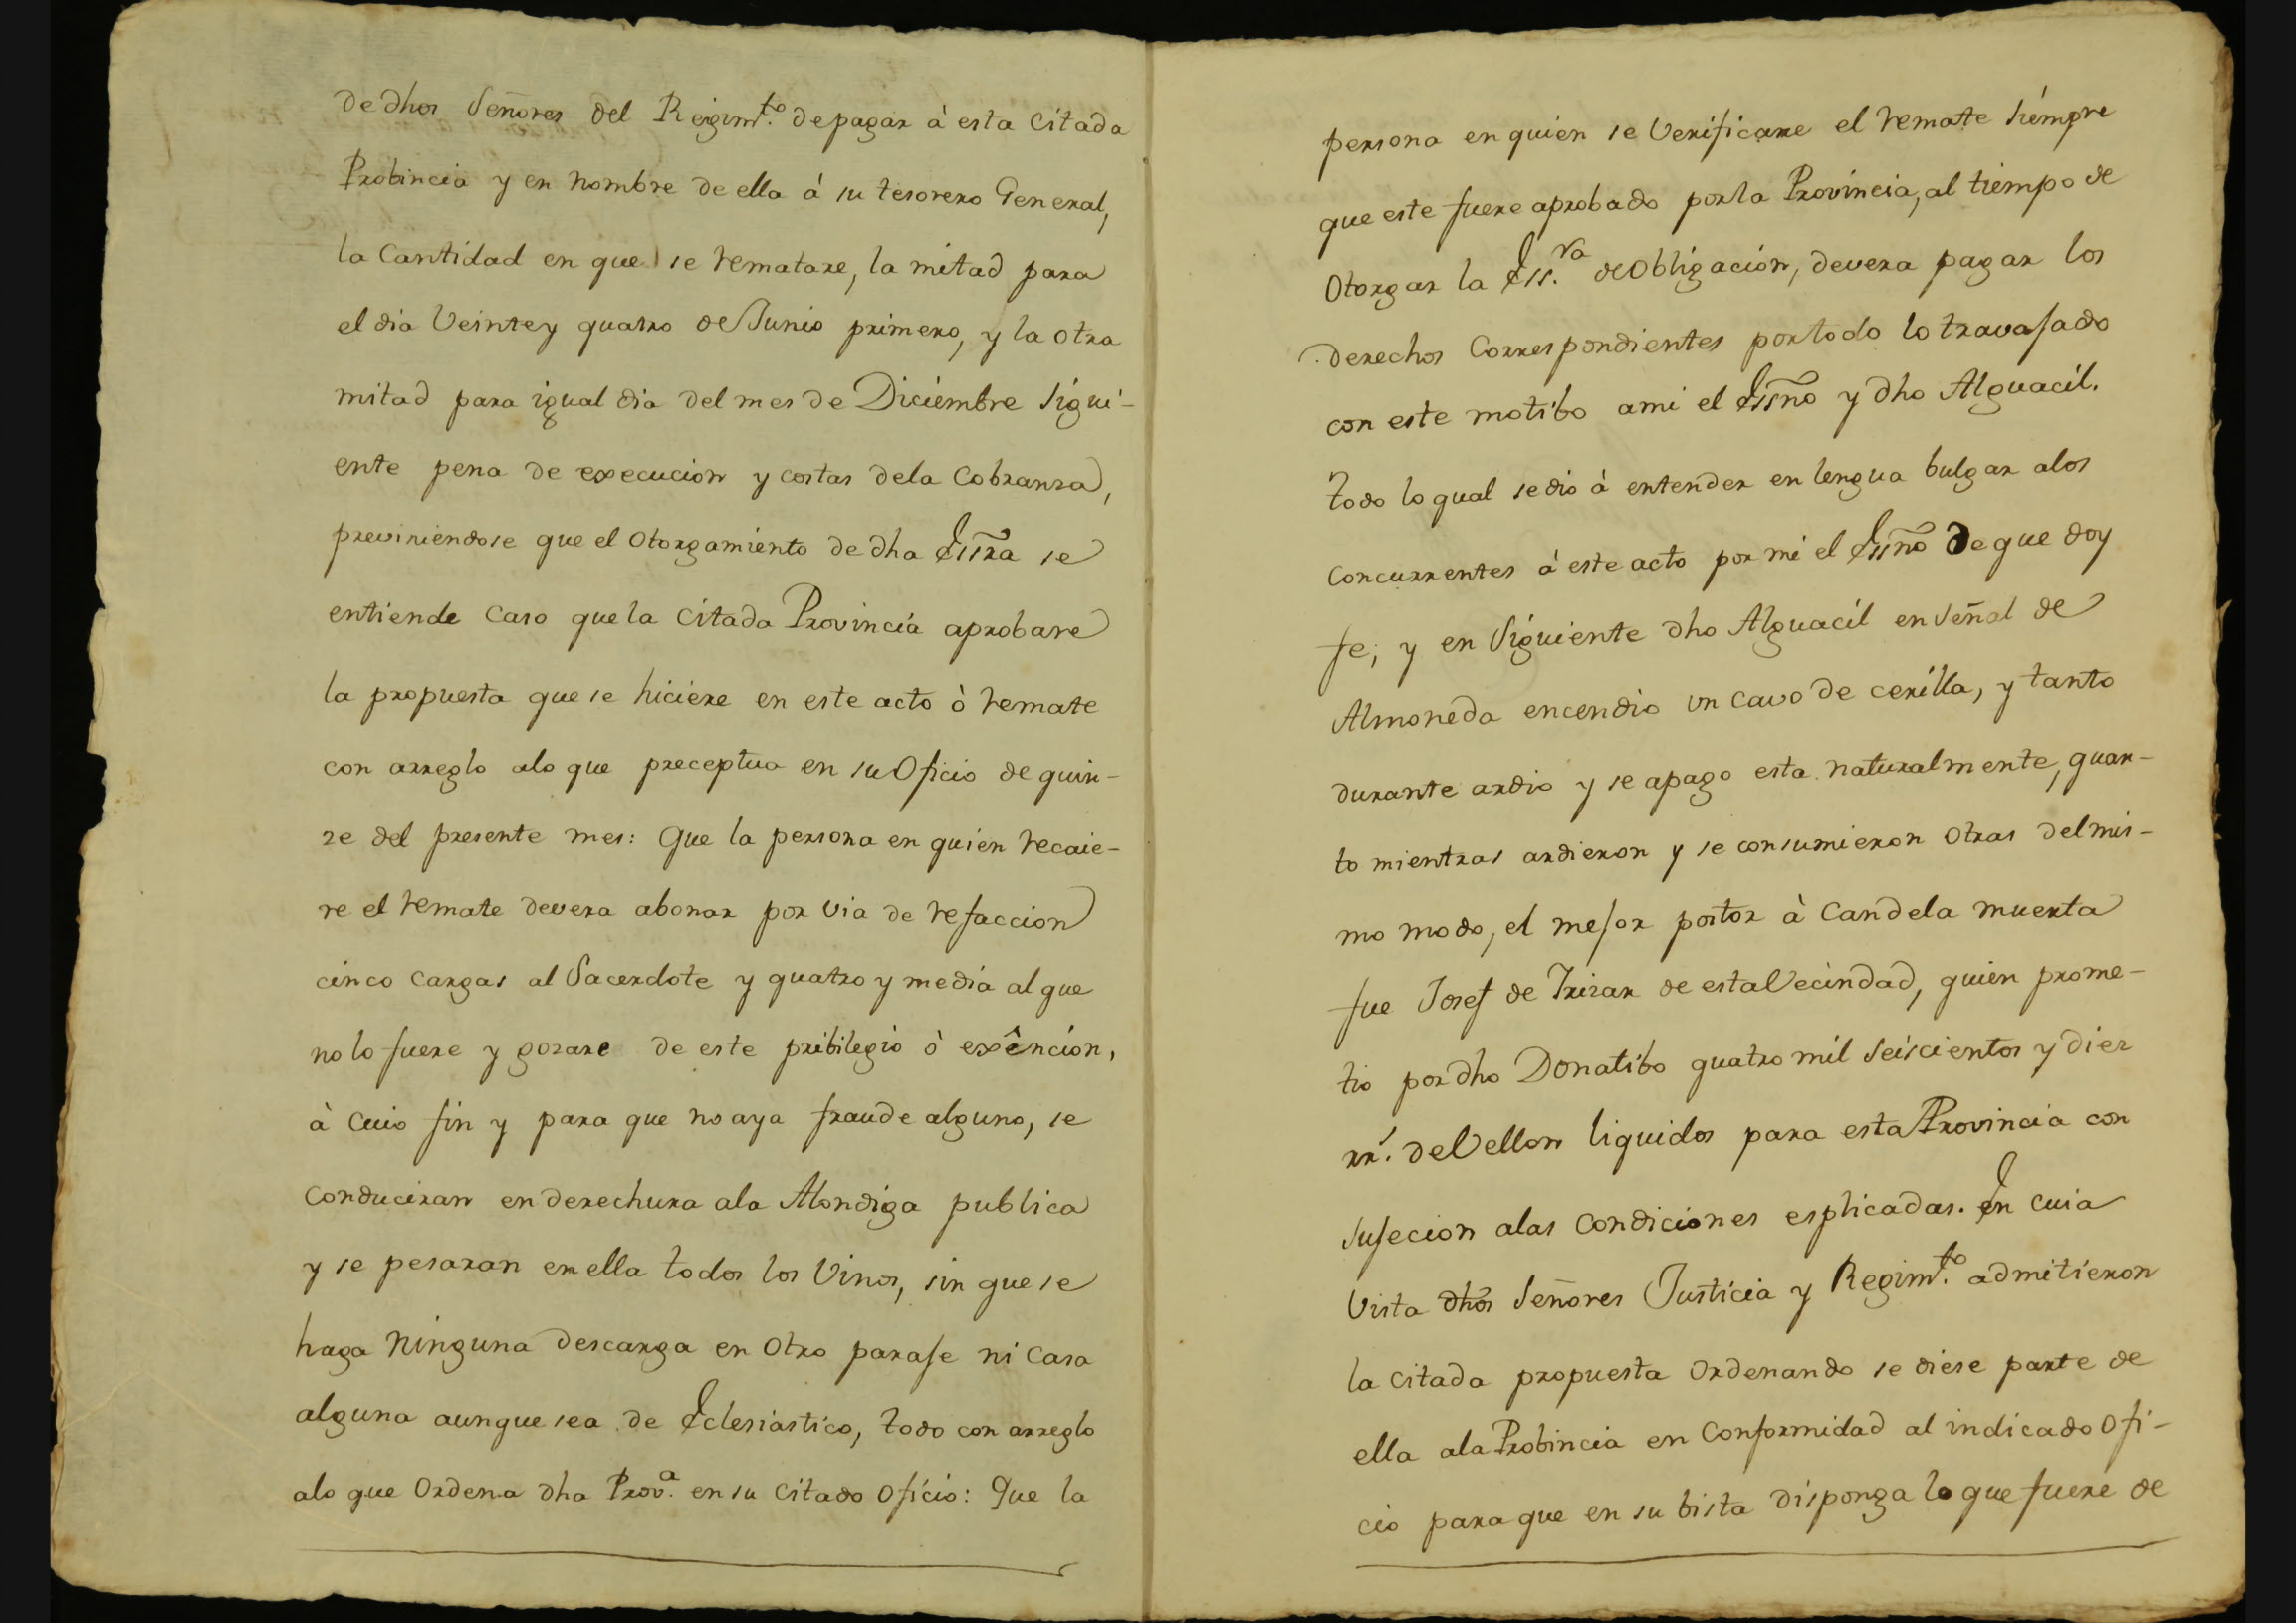 de dhos Señores del Regimto. de pagar à esta Citada
Probincia y en nombre de ella à su tesorero General,
la Cantidad en que se rematare, la mitad para
el dia Veinte y quatro de Junio primero, y la otra
mitad para igual dia del mes de Diciembre sigui-
ente pena de execucion y costas dela Cobranza,
previniendose que el otorgamiento de dha Essra se
entiende caso que la Citada Provincia aprobare
la propuesta que se hiciere en este acto ò remate
con arreglo alo que preceptua en su Oficio de quin-
ze del presente mes: Que la persona en quien recaie-
re el remate devera abonar por via de refaccion
cinco cargas al Sacerdote y quatro y media al que
no lo fuere y gozare de este pribilegio ò exêncion,
à cuio fin y para que no aya fraude alguno, se
conduciran en derechura ala Alondiga publica
y se pesaran en ella todos los Vinos, sin que se
haga ninguna descarga en otro paraje ni casa
alguna aunque sea de Eclesiastico, todo con arreglo
alo que Ordena dha Prova. en su citado oficio: Que la
persona en quien se Verificare el remate siempre
que este fuere aprobado por la Provincia, al tiempo de
Otorgar la Ess.ra de Obligacion, devera pagar los
derechos Correspondientes por todo lo travajado
con este motibo ami el Essño y dho Alguacil.
todo lo qual se dio à entender en lengua bulgar alos
concurrentes à este acto por mi el Essño de que doy
fe; y en siguiente dho Alguacil en señal de
Almoneda encendio un cavo de cerilla, y tanto
durante ardio y se apago esta naturalmente, quan-
to mientras ardieron y se consumieron otras del mis-
mo modo, el mejor postor à Candela muerta
fue Josef de Irizar de esta Vecindad, quien prome-
tio por dho Donatibo quatro mil seiscientos y diez
rrs. de Vellon liquidos para esta Provincia con
sujecion alas condiciones esplicadas. En cuia
Vista dhos Señores Justicia y Regimto. admitieron
la citada propuesta ordenando se diese parte de
ella ala Probincia en Conformidad al indicado Ofi-
cio para que en su bista disponga lo que fuere de